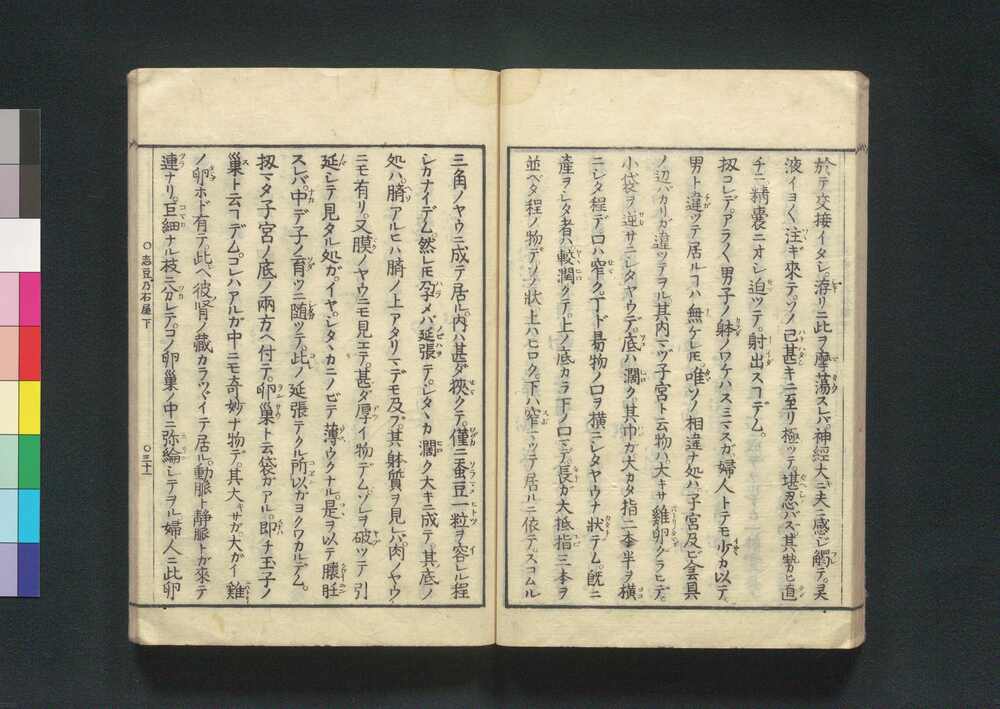 於テ交接イタシ。游リニ此ヲ摩蕩スレバ。神經大ニ夫ニ感ジ觸テ。灵
液イヨ〳〵注ギ來テ。ソノ己甚キニ至リ極ツテ。堪忍バズ其勢ヒ直
チニ精囊ニオシ迫ツテ。射出スコデム。
扨コレデ。アラ〳〵男子ノ躰ノワケハスミマスガ婦人トテモ少カ以テ
男ト違ツテ居ルコハ無ケレモ唯ソノ相違ナ処ハ子宮及ビ会具
ノ辺バカリガ違ツテヲル其内マヅ子宮ト云物ハ大キサ雞卵クラヒデ。
小袋ヲ逆サニシタヤウデ。底ハ濶ク。其巾ガ大カタ指二本半ヲ横
ニシタ程デ口ハ窄ク。丁ド昜物ノ口ヲ横ニシタヤウナ状デム。既ニ
產ヲシタ者ハ較濶クテ。上ノ底カラ下ノ口マデ。長ガ大抵指三本ヲ
並ベタ程ノ物デ。ソノ狀上ハヒロク。下ハ窄マツテ居ルニ依テ。スコムル
三角ノヤウニ成テ居ル。内ハ甚ダ挾クテ。僅ニ蚕豆一粒ヲ容レル程
シカナイデム。然レモ孕メバ延張テ。シタヽカ濶ク大キニ成テ。其底ノ
処ハ。臍アルヒハ臍ノ上アタリマデモ及ブ。其躰質ヲ見レバ。肉ノヤウ
ニモ有リ。又膜ノヤウニモ見エテ。甚ダ厚イ物デム。ソレヲ破ツテ引
延シテ見タル処ガ。イヤ。シタヽカニノビテ薄ウクナル。是ヲ以テ懷妊
スレバ。中デ子ノ育ツニ随ツテ此ノ延張テクル所以ガヨクワカルデム。
扨マタ子宮ノ底ノ兩方ヘ付テ。卵巢ト云袋ガアル。即チ玉子ノ
巢ト云コデム。コレハアルガ中ニモ奇妙ナ物デ。其大キサガ。大ガイ雞
ノ卵ホド有テ。此ヘ彼腎ノ藏カラツヾイテ居ル。動脈ト静脈トガ來テ
連ナリ。巨細ナル枝ニ分レテ。コノ卵巢ノ中ニ弥綸シテヲル婦人ニ此卵
○志豆乃石屋下
○三十一